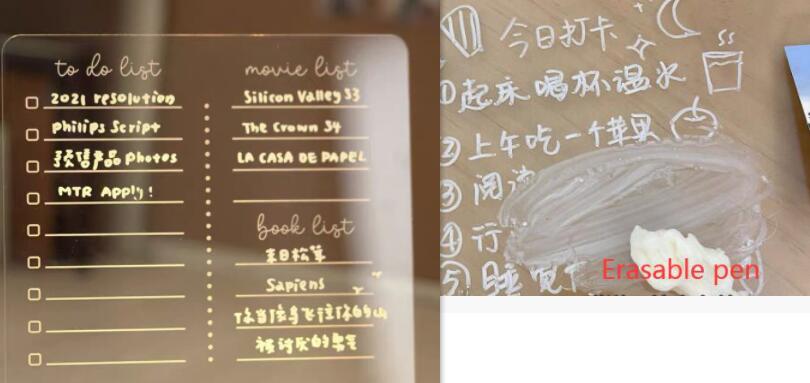 to do list
2021 resolution
Philips Script
预售产品 photos
MTR Apply!
movie list
Silicon Valley S3
The Crown S4
LA CASA DE PAPEL
book list
Sapiens
你当像鸟飞往你的山
被讨厌的勇气
今日打卡
①起来喝杯温水
②上午吃一个苹果
③阅读
④行
⑤睡觉
Erasable pen